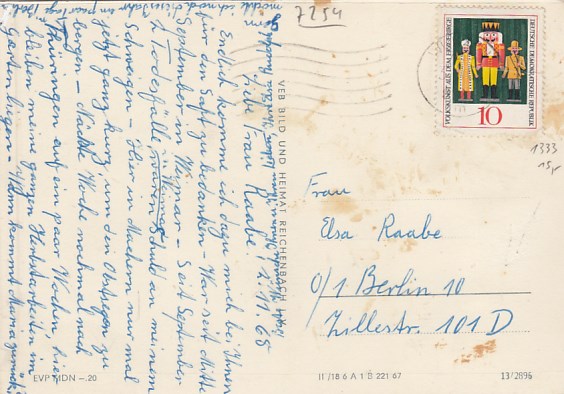 7254
1. 11. 68
Liebe Frau Raabe.
Endlich komme ich dazu mich bei Ihnen
für den Saft zu bedanken – War seit Mitte
September in Weimar – Seit September
2 Todesfälle waren Schuld an meinem
Schweigen – Hier in Machern nur mal
jetzt ganz kurz um den Obstsegen zu
bergen – Nächste Woche nochmal nach
Thüringen auf ein paar Wochen, hier
bleiben meine ganzen Herbstarbeiten im
Garten liegen – Wann kommt Maria zurück?
VEB BILD UND HEIMAT REICHENBACH
EVP MDN –.20
II/18 6 A 1 B 221 67
13/2896
VOLKSKUNST AUS DEM ERZGEBIRGE
DEUTSCHE DEMOKRATISCHE REPUBLIK
10
1333
15,-
Frau
Elsa Raabe
0/1 Berlin 10
Zillestr. 101 D